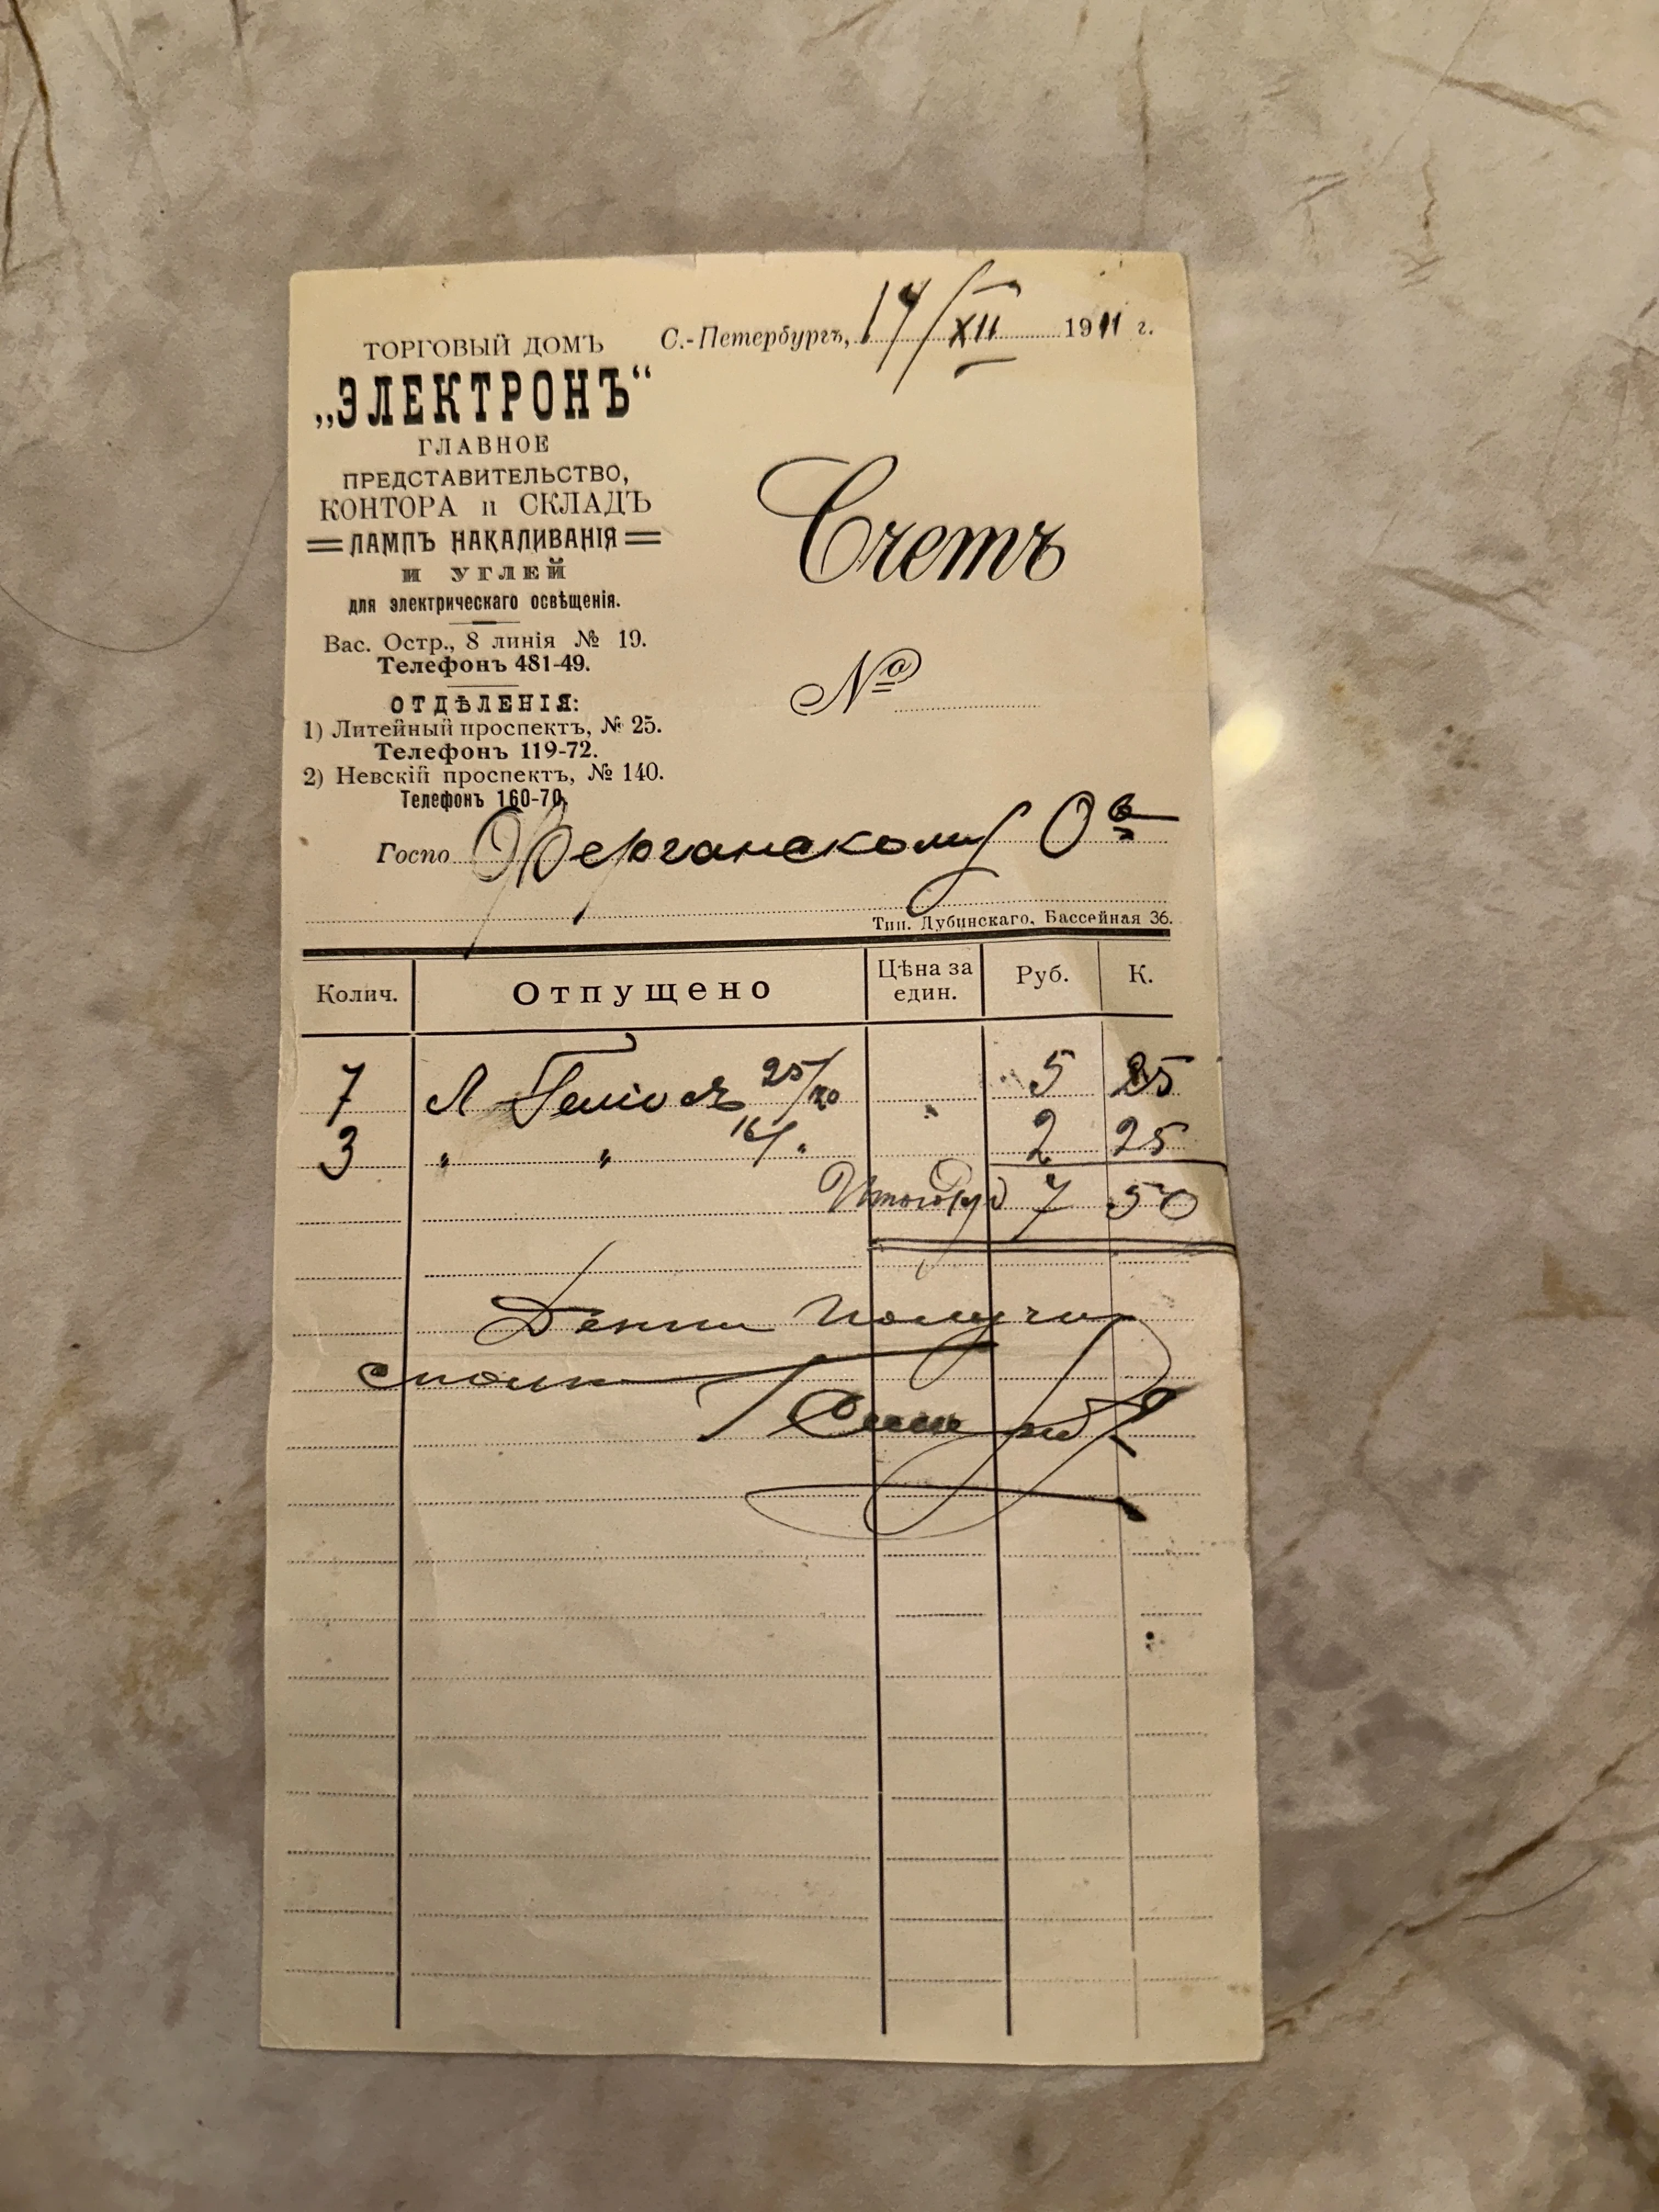 С.-Петербургъ, 14/XII 1911 г.
ТОРГОВЫЙ ДОМЪ
„ЭЛЕКТРОНЪ“
ГЛАВНОЕ
ПРЕДСТАВИТЕЛЬСТВО,
КОНТОРА и СКЛАДЪ
ЛАМПЪ НАКАЛИВАНІЯ
И УГЛЕЙ
для электрическаго освѣщенія.
Вас. Остр., 8 линія № 19.
Телефонъ 481-49.
ОТДѢЛЕНІЯ:
1) Литейный проспектъ, № 25.
Телефонъ 119-72.
2) Невскій проспектъ, № 140.
Телефонъ 160-70.
Счетъ
№
Госпо Ферганскому О-в
Тип. Дубинскаго, Бассейная 36.
Колич. Отпущено Цѣна за един. Руб. К.
7 Л Геліосъ 25/ 5 25
3 " " 16/" 2 25
Итого Руб 7 50
Деньги получи
сполн